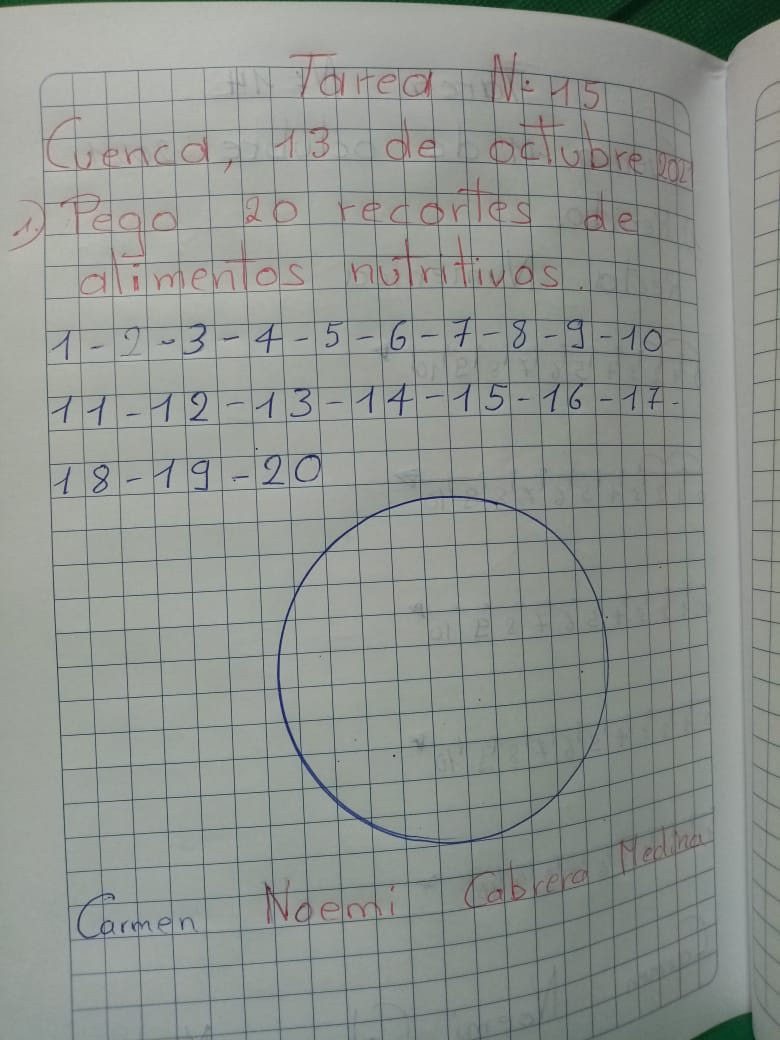 Tarea N: 15
Cuenca, 13 de octubre 202
1.) Pego 20 recortes de
alimentos nutritivos.
1 - 2 - 3 - 4 - 5 - 6 - 7 - 8 - 9 - 10
11 - 12 - 13 - 14 - 15 - 16 - 17 -
18 - 19 - 20
Carmen Noemi Cabrera Medina